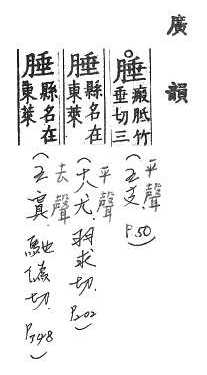 廣韻
腄 瘢胝竹垂切三
(五支 平聲 P.50)
腄 縣名在東萊
(十八尤 平聲 羽求切 P.202)
腄 縣名在東萊
(五寘 去聲 馳偽切 P.348)